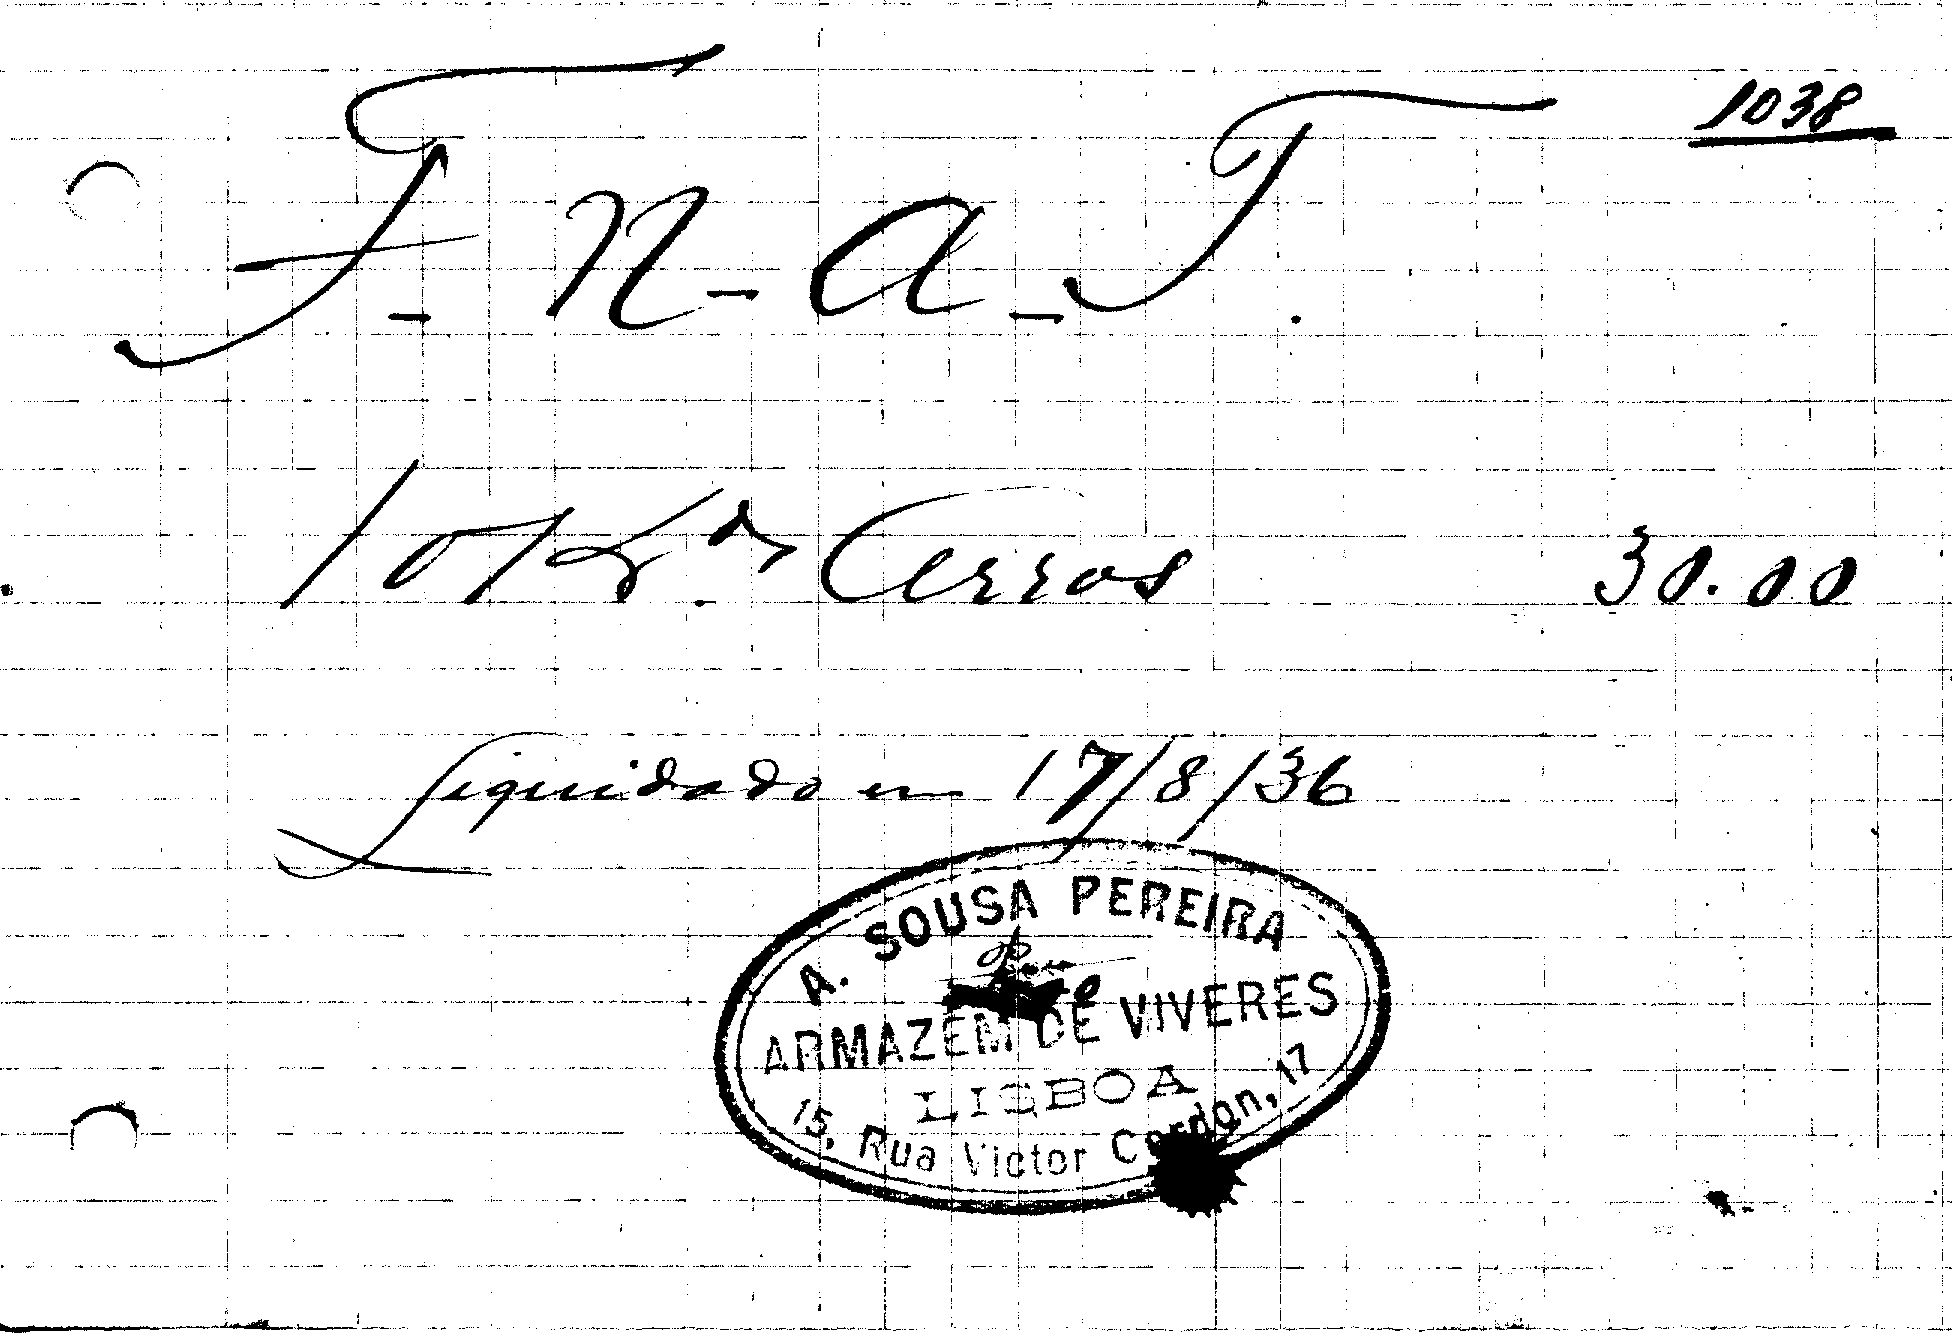 1038
F-N-A-T.
10 K.os Arros 30.00
Liquidado em 17/8/36
A. SOUSA PEREIRA
ARMAZEM DE VIVERES
LISBOA
15, Rua Victor Cordon, 17